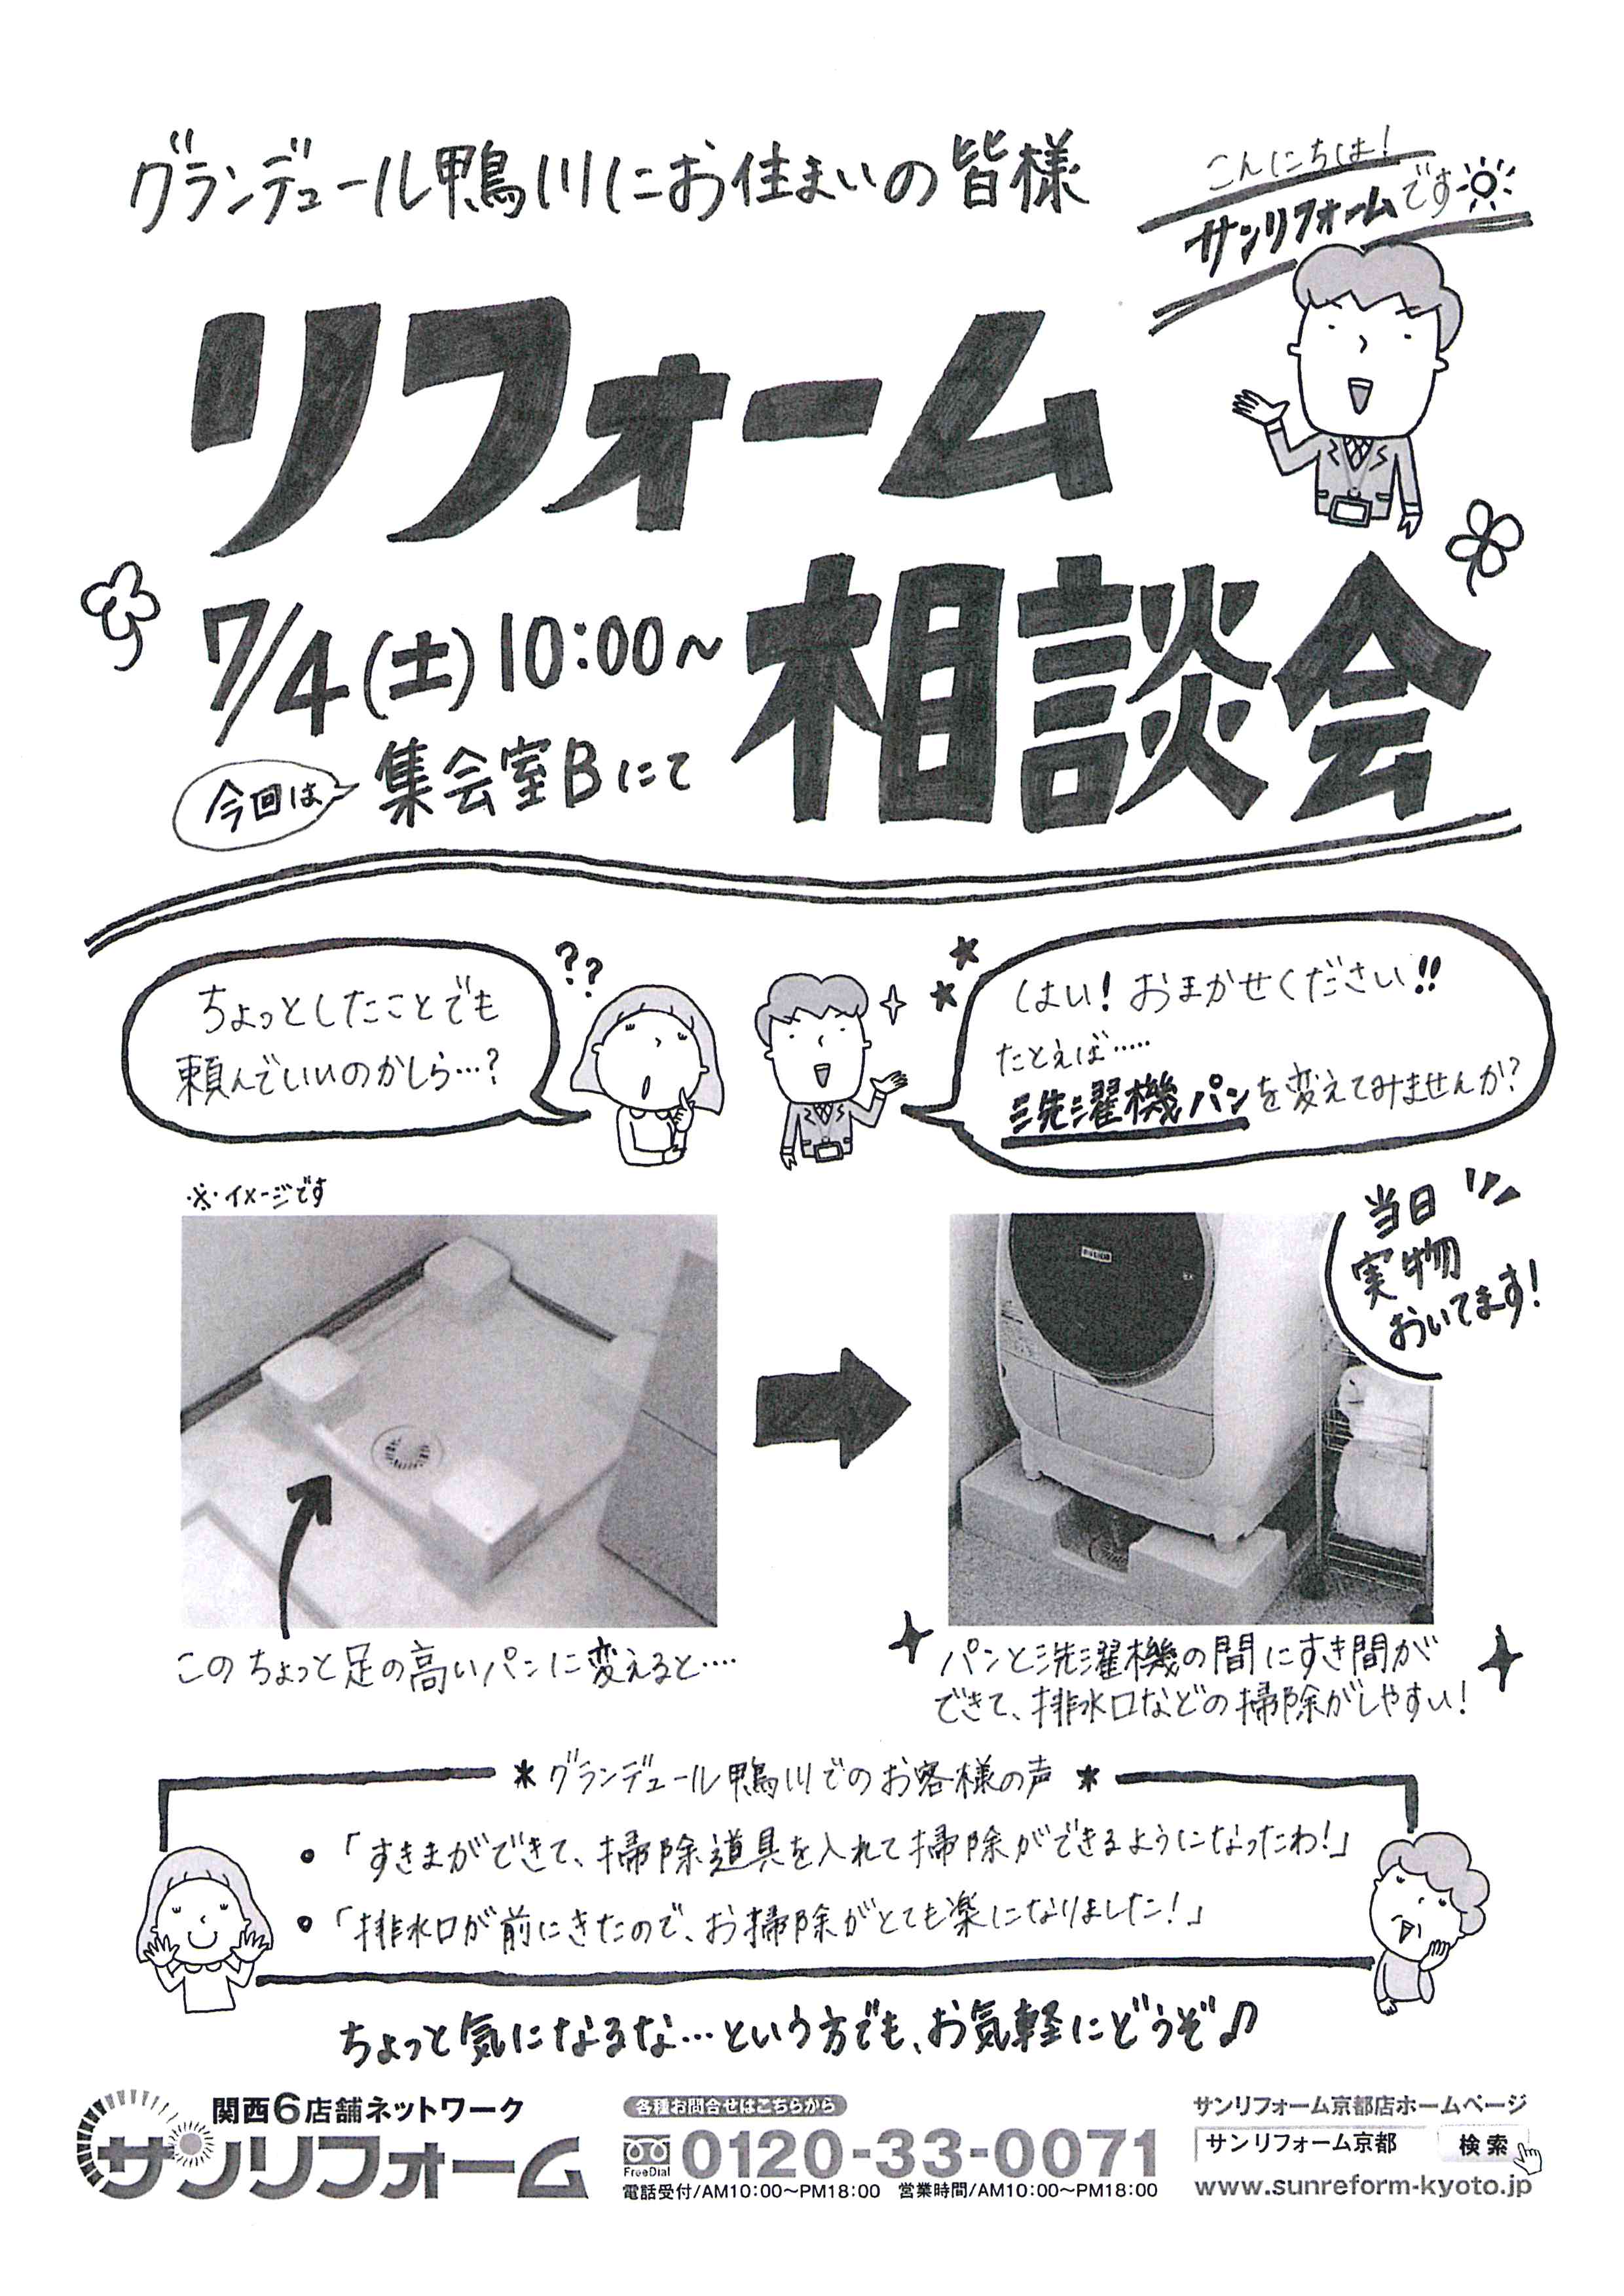 グランデュール鴨川にお住まいの皆様
こんにちは!
サンリフォームです
リフォーム
相談会
7/4(土)10:00〜
今回は
集会室Bにて
ちょっとしたことでも
頼んでいいのかしら…?
??
はい!おまかせください!!
たとえば……
洗濯機パンを変えてみませんか?
※イメージです
当日
実物
おいてます!
このちょっと足の高いパンに変えると….
パンと洗濯機の間にすき間が
できて、排水口などの掃除がしやすい!
*グランデュール鴨川でのお客様の声*
•「すきまができて、掃除道具を入れて掃除ができるようになったわ!」
•「排水口が前にきたので、お掃除がとても楽になりました!」
ちょっと気になるな…という方でも、お気軽にどうぞ♪
関西6店舗ネットワーク
サンリフォーム
各種お問合せはこちらから
FreeDial
0120-33-0071
電話受付/AM10:00〜PM18:00 営業時間/AM10:00〜PM18:00
サンリフォーム京都店ホームページ
サンリフォーム京都 検索
www.sunreform-kyoto.jp